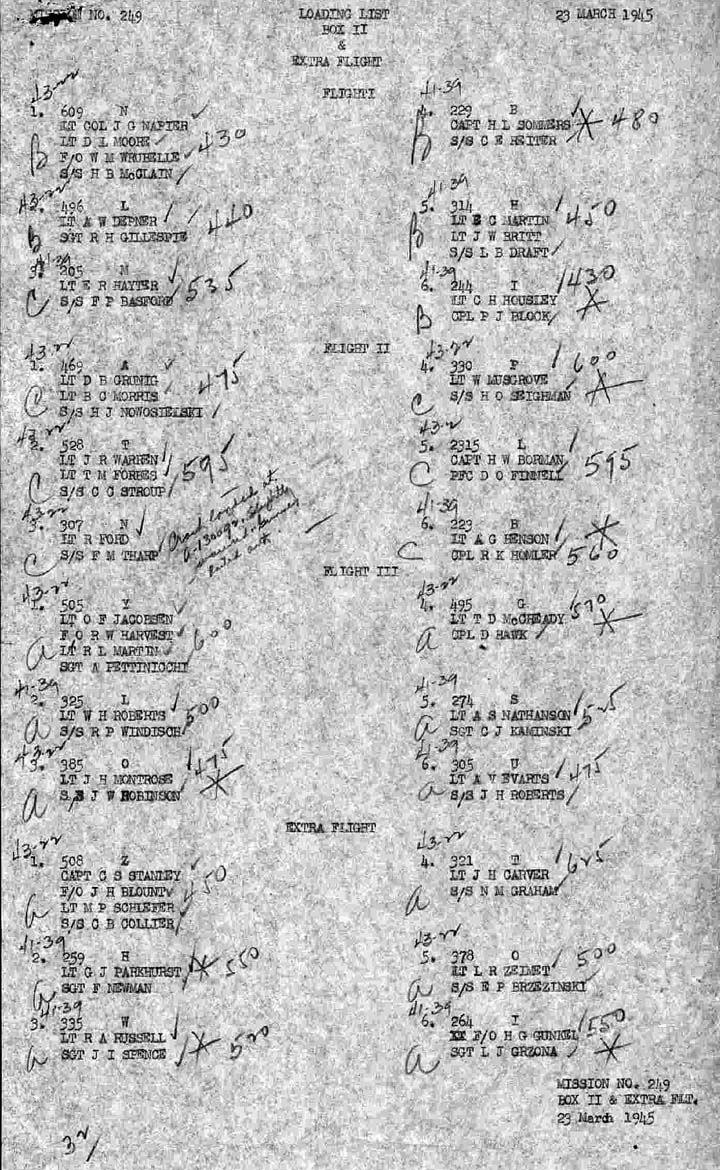 MISSION NO. 249
LOADING LIST
BOX II
&
EXTRA FLIGHT
23 MARCH 1945
FLIGHT I
43-22
1. 609 N
LT COL J G NAPIER
LT D L MOORE 430
F/O W M WRUBELLE
S/S H B McCLAIN
B
43-22
2. 496 L
LT A W DEPNER 440
SGT R H GILLESPIE
B
41-39
3. 205 M
LT E R HAYTER 535
S/S F P BASFORD
C
41-39
4. 229 B
CAPT H L SOMMERS 480
S/S C E REITER
B
41-39
5. 314 H
LT B C MARTIN 450
LT J W BRITT
S/S L B DRAFT
B
41-39
6. 244 I 430
LT C H HOUSLEY
CPL P J BLOCK
B
FLIGHT II
43-22
1. 469 A
LT D B GRUNIG 475
LT B C MORRIS
S/S H J NOWOSIELSKI
C
43-22
2. 528 T
LT J R WARREN 595
LT T M FORBES
S/S C C STROUP
C
43-22
3. 307 N
LT R FORD
S/S F M THARP
C
Crash landed at
A-130092. Slightly
wounded. Gunner
bailed out.
43-22
4. 330 P 600
LT W MUSGROVE
S/S H O SEIGHMAN
C
43-2
5. 2915 L
CAPT H W BORMAN 595
PFC D O FINNELL
C
41-39
6. 223 B
LT A G HENSON
CPL R K HOMLER 560
C
FLIGHT III
43-22
1. 505 Y
LT O F JACOBSEN
F O R W HARVEST 600
LT R L MARTIN
SGT A PETTINICCHI
a
41-39
2. 325 L
LT W H ROBERTS 500
S/S R P WINDISCH
a
43-22
3. 985 O
LT J H MONTROSE 475
S/S J W ROBINSON
a
43-22
4. 495 G
LT T D McCREADY 570
CPL D HAWK
a
41-39
5. 274 S
LT A S NATHANSON
SGT C J KAMINSKI
a
41-39
6. 305 U
LT A V EVARTS 475
S/S J H ROBERTS
a
EXTRA FLIGHT
43-22
1. 508 Z
CAPT C S STANLEY
F/O J H BLOUNT 450
LT M P SCHIEFER
S/S C B COLLIER
a
41-39
2. 259 H
LT G J PARKHURST 550
SGT F NEWMAN
a
41-39
3. 335 W
LT R A RUSSELL
SGT J I SPENCE 500
a
43-22
4. 321 T
LT J H CARVER 625
S/S N M GRAHAM
a
43-22
5. 378 O 500
LT L R ZEIMET
S/S E P BRZEZINSKI
a
41-39
6. 264 I
F/O H G GUNKEL 550
SGT L J GRZONA
a
MISSION NO. 249
BOX II & EXTRA FLT.
23 March 1945
32/